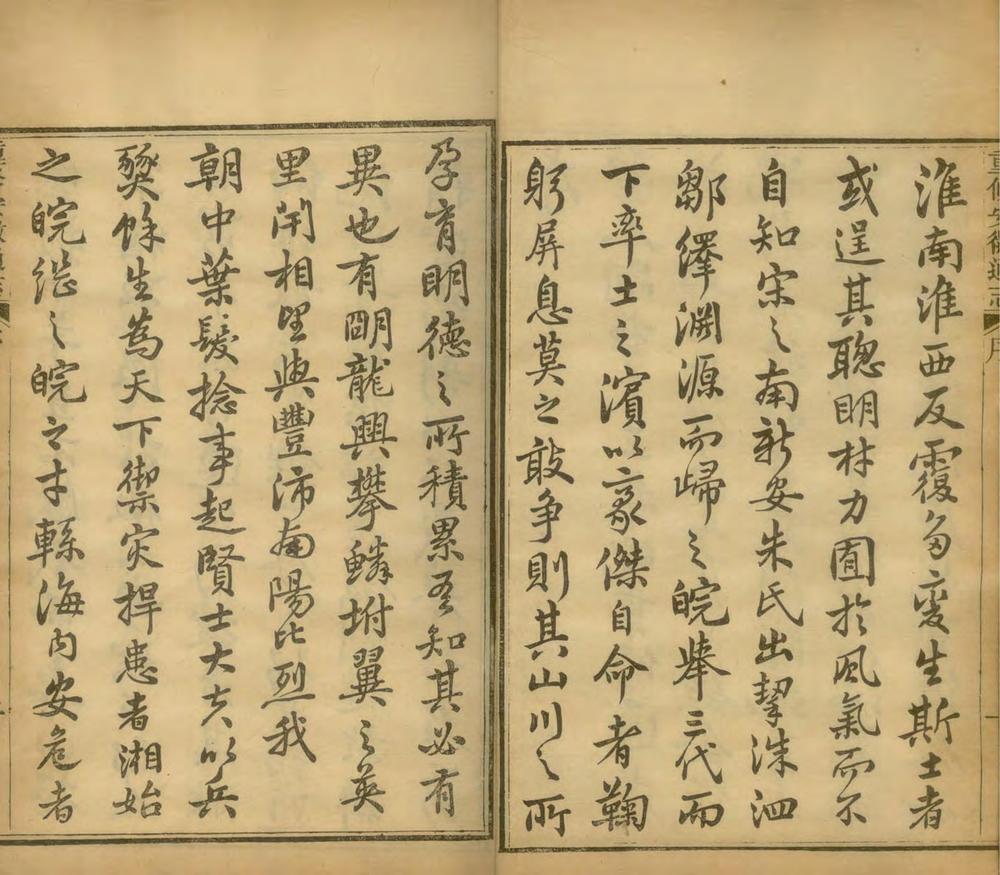 淮南淮西反覆多變生斯土者
或逞其聰明材力囿於風氣而不
自知宋之南新安朱氏出挈洙泗
鄒繹淵源而歸之皖舉三代而
下率土之濱以豪傑自命者鞠
躬屏息莫之敢爭則其山川之所
孕育明德之所積累吾知其必有
異也有明龍興攀鱗坿翼之英
里閈相望與豐沛南陽比烈我
朝中葉髮捻事起賢士大夫以兵
燹餘生為天下禦災捍患者湘始
之皖繼之皖之才繇海內安危者